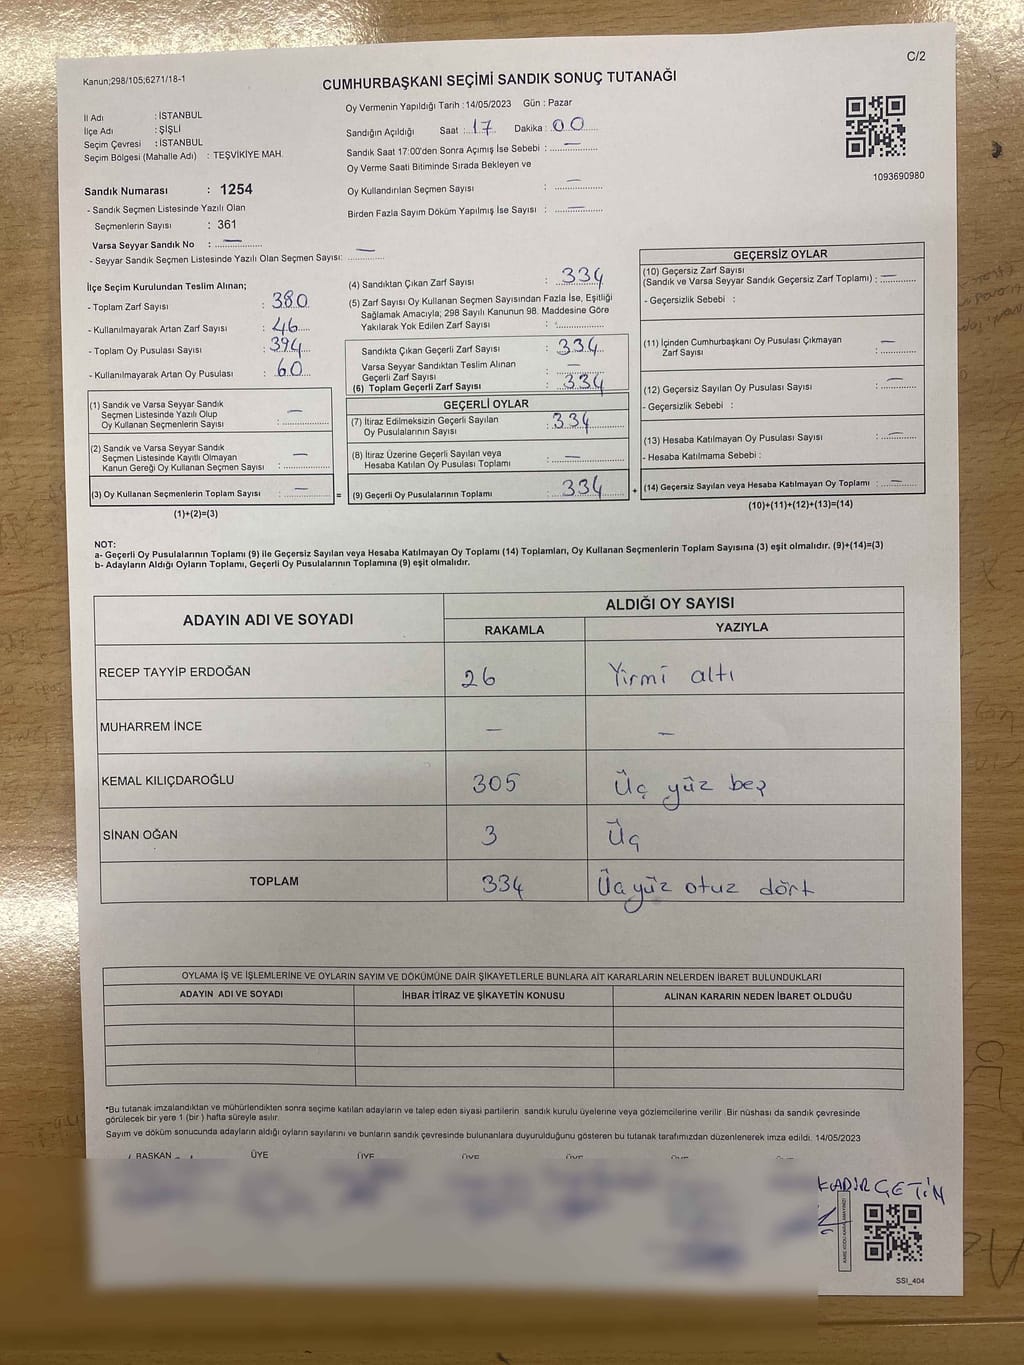 C/2
Kanun;298/105;6271/18-1
CUMHURBAŞKANI SEÇİMİ SANDIK SONUÇ TUTANAĞI
İl Adı : İSTANBUL
İlçe Adı : ŞİŞLİ
Seçim Çevresi : İSTANBUL
Seçim Bölgesi (Mahalle Adı) : TEŞVİKİYE MAH.
Sandık Numarası : 1254
- Sandık Seçmen Listesinde Yazılı Olan
Seçmenlerin Sayısı : 361
Varsa Seyyar Sandık No : —
- Seyyar Sandık Seçmen Listesinde Yazılı Olan Seçmen Sayısı: —
Oy Vermenin Yapıldığı Tarih : 14/05/2023 Gün : Pazar
Sandığın Açıldığı Saat : 17 Dakika : 00
Sandık Saat 17:00'den Sonra Açımış İse Sebebi : —
Oy Verme Saati Bitiminde Sırada Bekleyen ve
Oy Kullandırılan Seçmen Sayısı : —
Birden Fazla Sayım Döküm Yapılmış İse Sayısı : —
1093690980
İlçe Seçim Kurulundan Teslim Alınan;
- Toplam Zarf Sayısı : 380
- Kullanılmayarak Artan Zarf Sayısı : 46
- Toplam Oy Pusulası Sayısı : 394
- Kullanılmayarak Artan Oy Pusulası : 60
(1) Sandık ve Varsa Seyyar Sandık
Seçmen Listesinde Yazılı Olup
Oy Kullanan Seçmenlerin Sayısı : —
(2) Sandık ve Varsa Seyyar Sandık
Seçmen Listesinde Kayıtlı Olmayan
Kanun Gereği Oy Kullanan Seçmen Sayısı : —
(3) Oy Kullanan Seçmenlerin Toplam Sayısı : —
(1)+(2)=(3)
(4) Sandıktan Çıkan Zarf Sayısı : 334
(5) Zarf Sayısı Oy Kullanan Seçmen Sayısından Fazla İse, Eşitliği
Sağlamak Amacıyla; 298 Sayılı Kanunun 98. Maddesine Göre
Yakılarak Yok Edilen Zarf Sayısı :
Sandıkta Çıkan Geçerli Zarf Sayısı : 334
Varsa Seyyar Sandıktan Teslim Alınan
Geçerli Zarf Sayısı : —
(6) Toplam Geçerli Zarf Sayısı : 334
GEÇERLİ OYLAR
(7) İtiraz Edilmeksizin Geçerli Sayılan
Oy Pusulalarının Sayısı : 334
(8) İtiraz Üzerine Geçerli Sayılan veya
Hesaba Katılan Oy Pusulası Toplamı : —
= (9) Geçerli Oy Pusulalarının Toplamı : 334 +
GEÇERSİZ OYLAR
(10) Geçersiz Zarf Sayısı
(Sandık ve Varsa Seyyar Sandık Geçersiz Zarf Toplamı) : —
- Geçersizlik Sebebi :
(11) İçinden Cumhurbaşkanı Oy Pusulası Çıkmayan
Zarf Sayısı : —
(12) Geçersiz Sayılan Oy Pusulası Sayısı : —
- Geçersizlik Sebebi :
(13) Hesaba Katılmayan Oy Pusulası Sayısı : —
- Hesaba Katılmama Sebebi :
(14) Geçersiz Sayılan veya Hesaba Katılmayan Oy Toplamı : —
(10)+(11)+(12)+(13)=(14)
NOT:
a- Geçerli Oy Pusulalarının Toplamı (9) ile Geçersiz Sayılan veya Hesaba Katılmayan Oy Toplamı (14) Toplamları, Oy Kullanan Seçmenlerin Toplam Sayısına (3) eşit olmalıdır. (9)+(14)=(3)
b- Adayların Aldığı Oyların Toplamı, Geçerli Oy Pusulalarının Toplamına (9) eşit olmalıdır.
ADAYIN ADI VE SOYADI ALDIĞI OY SAYISI
RAKAMLA YAZIYLA
RECEP TAYYİP ERDOĞAN 26 Yirmi altı
MUHARREM İNCE — —
KEMAL KILIÇDAROĞLU 305 Üç yüz beş
SİNAN OĞAN 3 Üç
TOPLAM 334 Üçyüz otuz dört
OYLAMA İŞ VE İŞLEMLERİNE VE OYLARIN SAYIM VE DÖKÜMÜNE DAİR ŞİKAYETLERLE BUNLARA AİT KARARLARIN NELERDEN İBARET BULUNDUKLARI
ADAYIN ADI VE SOYADI İHBAR İTİRAZ VE ŞİKAYETİN KONUSU ALINAN KARARIN NEDEN İBARET OLDUĞU
*Bu tutanak imzalandıktan ve mühürlendikten sonra seçime katılan adayların ve talep eden siyasi partilerin sandık kurulu üyelerine veya gözlemcilerine verilir. Bir nüshası da sandık çevresinde
görülecek bir yere 1 (bir) hafta süreyle asılır.
Sayım ve döküm sonucunda adayların aldığı oyların sayılarını ve bunların sandık çevresinde bulunanlara duyurulduğunu gösteren bu tutanak tarafımızdan düzenlenerek imza edildi. 14/05/2023
BAŞKAN ÜYE ÜYE ÜYE ÜYE
KADİR ÇETİN
SSI_404